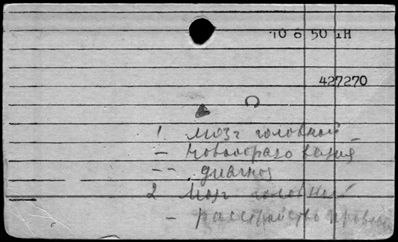 427270
1. мозг головной
– новообразования
– – диагноз
2 мозг головной
– расстройство